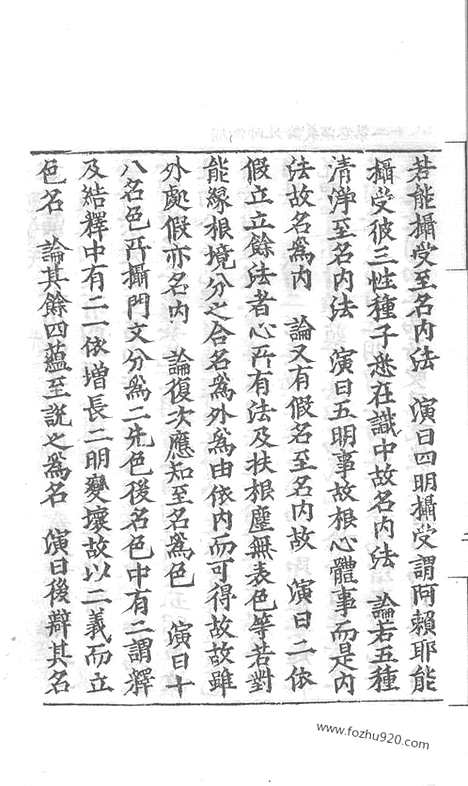 若能攝受至名内法　演曰四明攝受謂阿賴耶能
攝受彼三性種子㳫在識中故名内法　論若五種
清淨至名内法　演曰五明事故根心體事而是内
法故名爲内　論又有假名至名内故　演曰二依
假立立餘法者心所有法及扶根塵無表色等若對
能緣根境分之合名爲外爲由依内而可得故故雖
外處假亦名内　論復次應知至名爲色　演曰十
八名色所攝門文分爲二先色後名色中有二謂釋
及結釋中有二一依增長二明變壞故以二義而立
色名　論其餘四蘊至説之爲名　演曰後辯其名
www.fozhu920.com